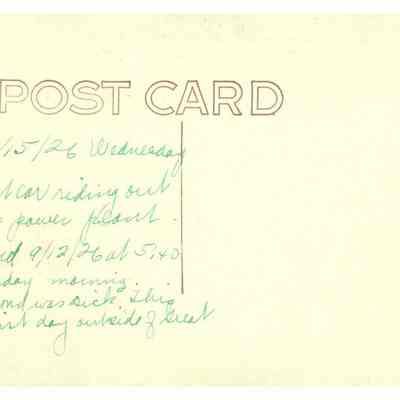 POST CARD
/15/26 Wednesday
t car riding out
power plant.
ed 9/12/26 at 5:40
day morning.
ond was sick. This
irst day outside of Great